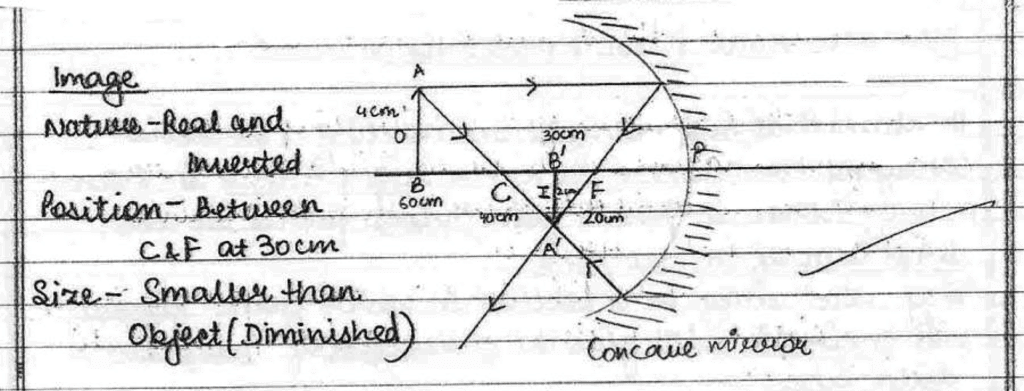 Image
Nature - Real and
Inverted
Position - Between
C & F at 30cm
Size - Smaller than
Object (Diminished)
A
4cm
O
B
60cm
C
40cm
30cm
B'
I
2cm
F
20cm
A'
P
Concave mirror